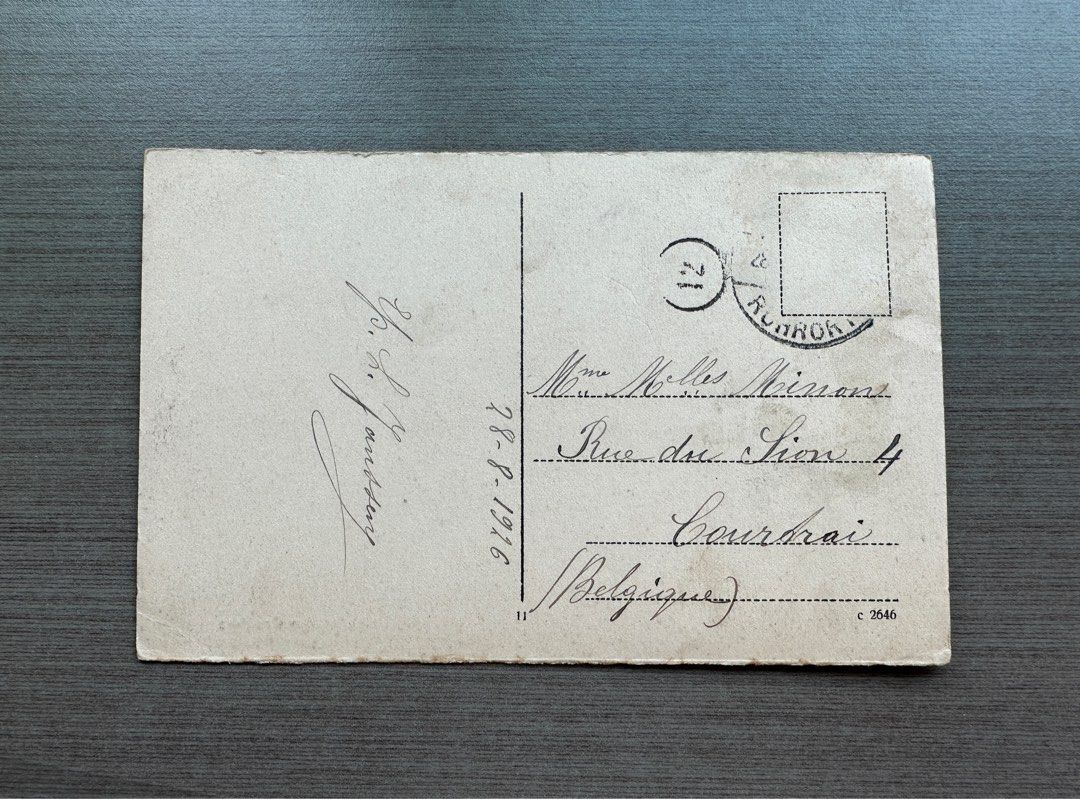 L. Janssen
28-8-1926
12
RUHRORT
Mme Melles Minon
Rue du Sion 4
Courtrai
(Belgique)
11
c 2646